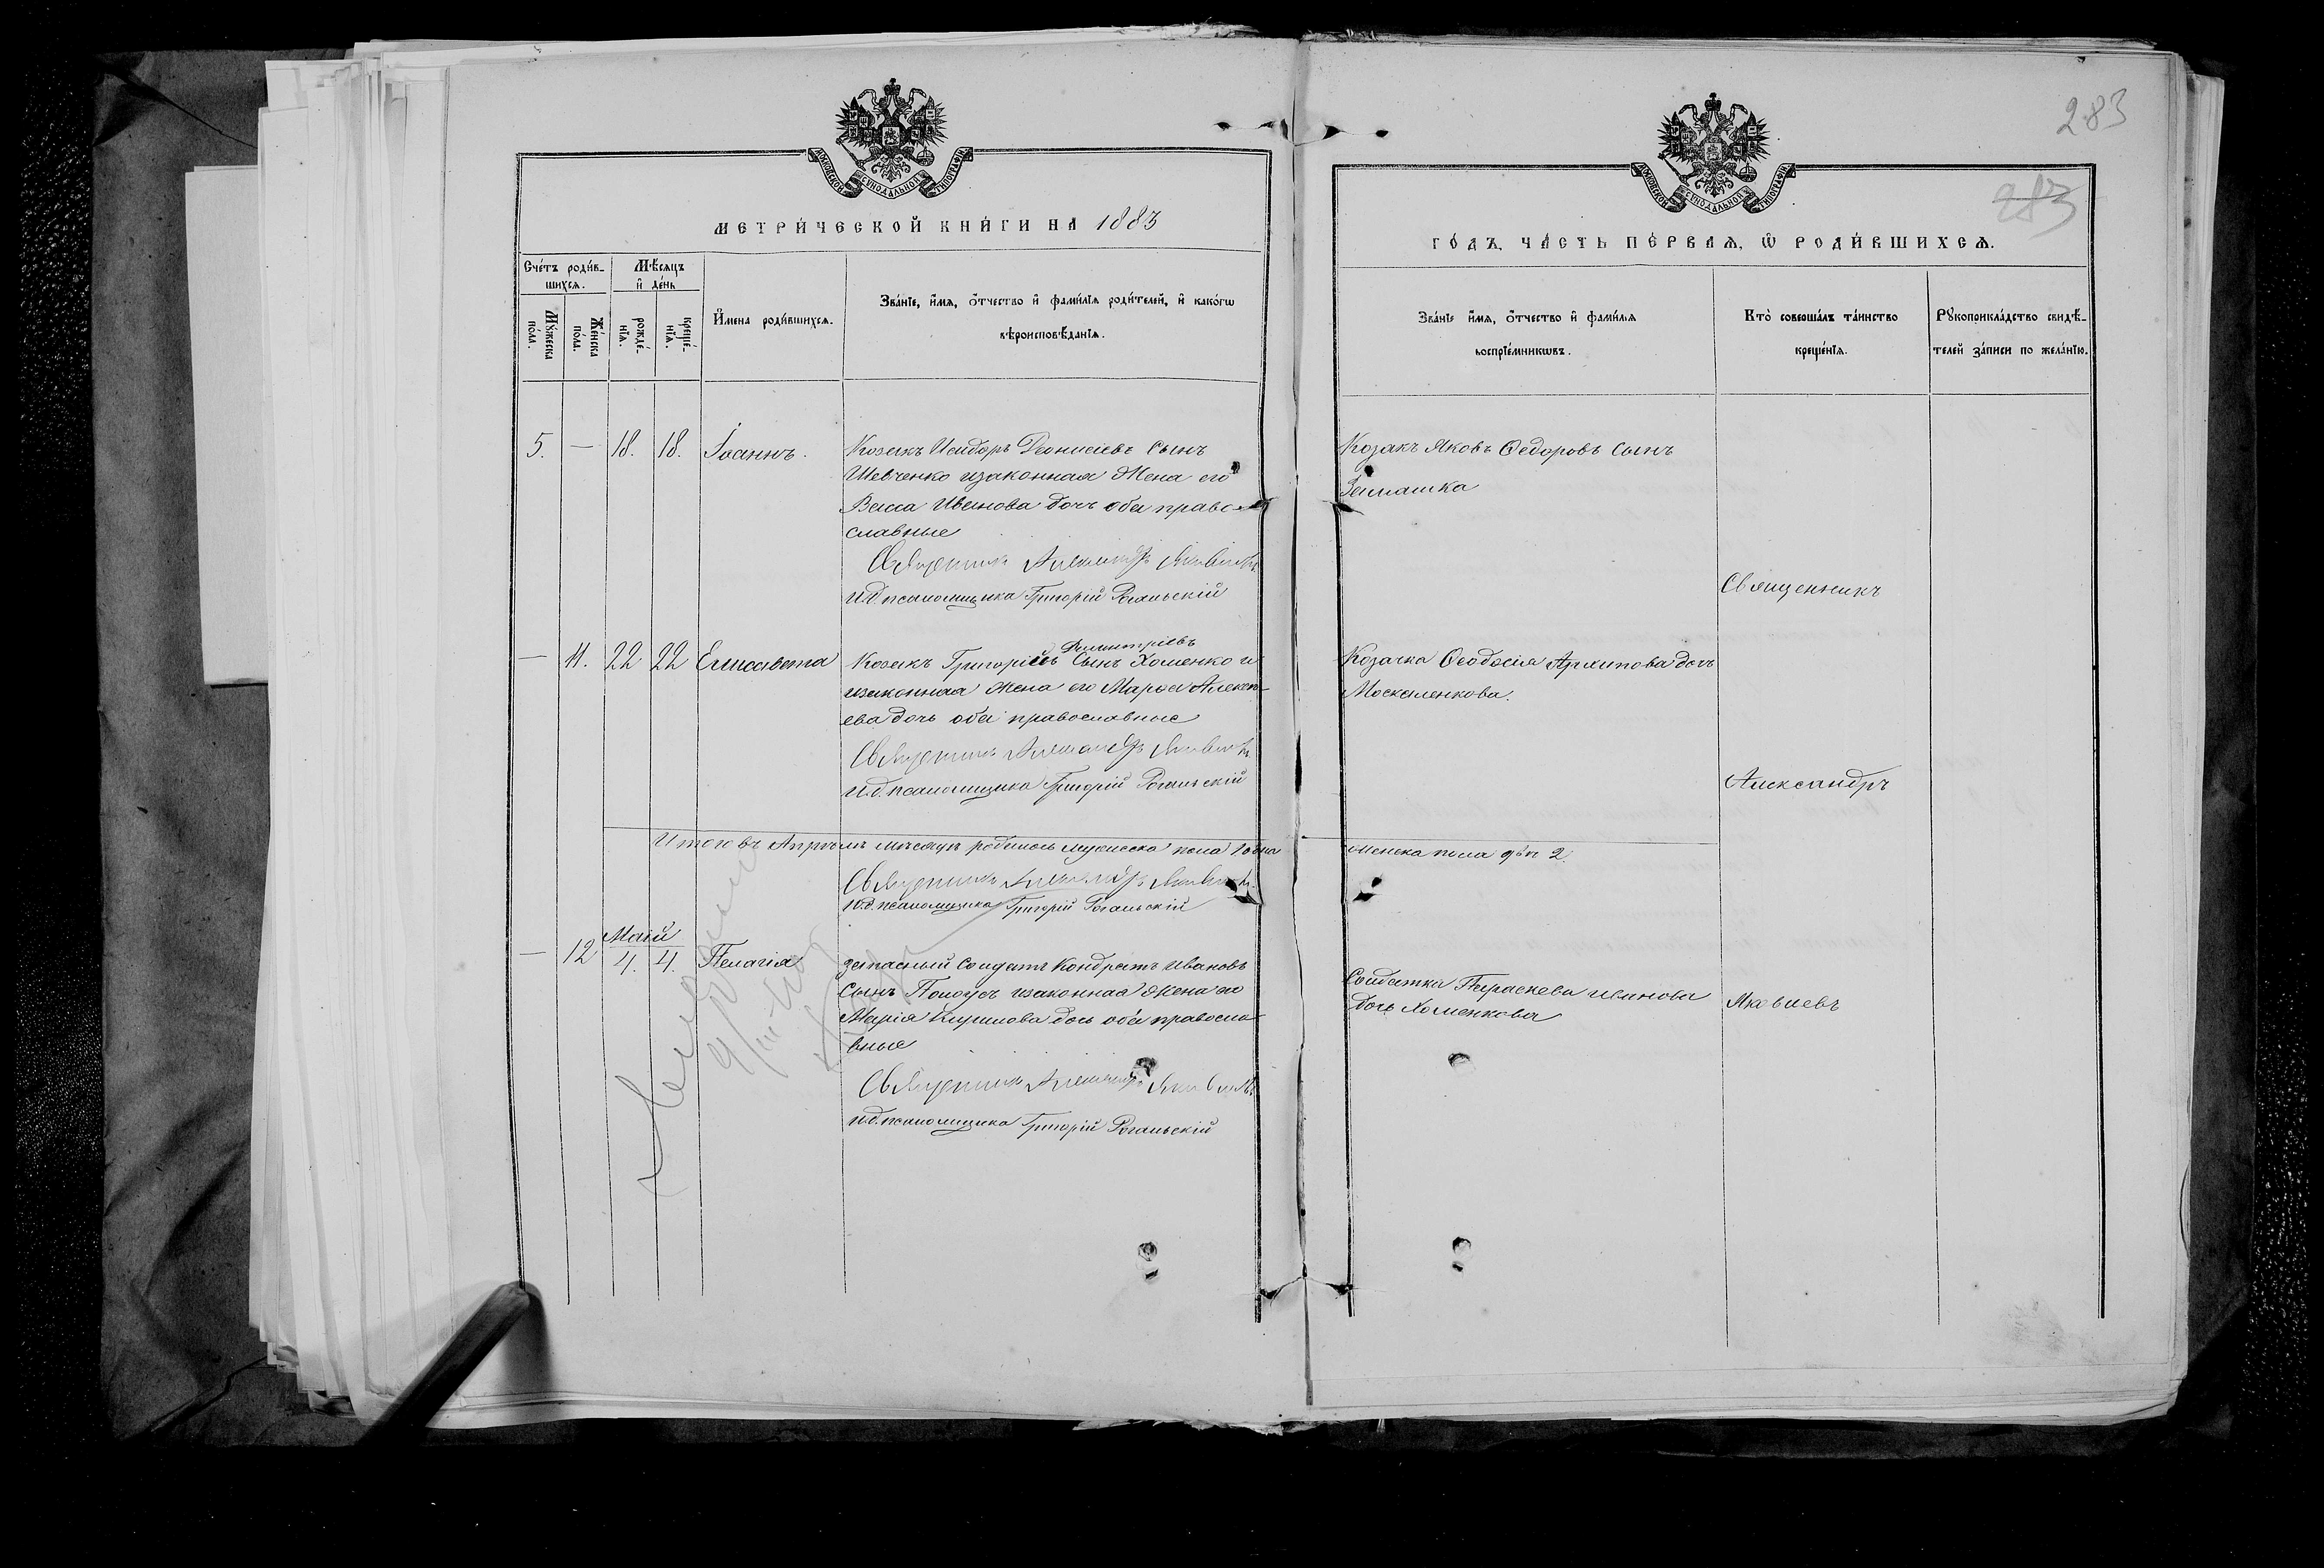 283
283
МОСКОВСКОЙ СѴНОДАЛЬНОЙ ТИПОГРАФІИ
МОСКОВСКОЙ СѴНОДАЛЬНОЙ ТИПОГРАФІИ
МЕТРИ́ЧЕСКОЙ КНИ́ГИ НА 1883
ГО́ДЪ, ЧА́СТЬ ПЕ́РВАѦ, Ѽ РОДИ́ВШИХСѦ.
Сче́тъ роди́в-
шихсѧ.
Мꙋ́жеска
по́ла.
Же́нска
по́ла.
Мѣ́сѧцъ
и҆ де́нь
рожде́-
нїѧ.
креще́-
нїѧ.
И҆́мена роди́вшихсѧ.
Зва́нїе, и҆́мѧ, о҆́тчество и҆ фами́лїѧ роди́телей, и҆ како́гѡ
вѣроисповѣ́данїѧ.
Зва́нїе и҆́мѧ, о҆́тчество и҆ фами́лїѧ
воспрїе́мникѡвъ.
Кто̀ соверша́лъ та́инство
креще́нїѧ.
Рꙋкоприкла́дство свидѣ́-
телей за́писи по жела́нїю.
5. — 18. 18. Іоаннъ.
Козакъ Исидоръ Діонисіевъ Сынъ
Шевченко изаконная Жена его
Васса Иванова дочь оба право-
славные
Священникъ Александръ Яковлевъ
И.д. псаломщика Григорій Рогальскій
Козакъ Яковъ Ѳедоровъ Сынъ
Священникъ
— 11. 22 22 Елисавета
Димитріевъ
Козакъ Григорій Сынъ Хоменко и
изаконная Жена его Марѳа Алексѣ-
ева дочь оба православные
Священникъ Александръ Яковлевъ
И.д. псаломщика Григорій Рогальскій
Козачка Ѳеодосія Архипова дочь
Москаленкова.
Александръ
Итого въ Апрѣлѣ мѣсяцѣ родилось мужеска пола 1 а
женска пола 2.
Священникъ Александръ Яковлевъ
И.д. псаломщика Григорій Рогальскій
Маій
— 12 4. 4. Пелагія
запасный Солдатъ Кондратъ Ивановъ
Сынъ изаконная Жена его
Марія Кирилова дочь оба правосла-
вные
Священникъ Александръ Яковлевъ
И.д. псаломщика Григорій Рогальскій
Солдатка Параскева Иванова
дочь Хоменкова
Яковлевъ